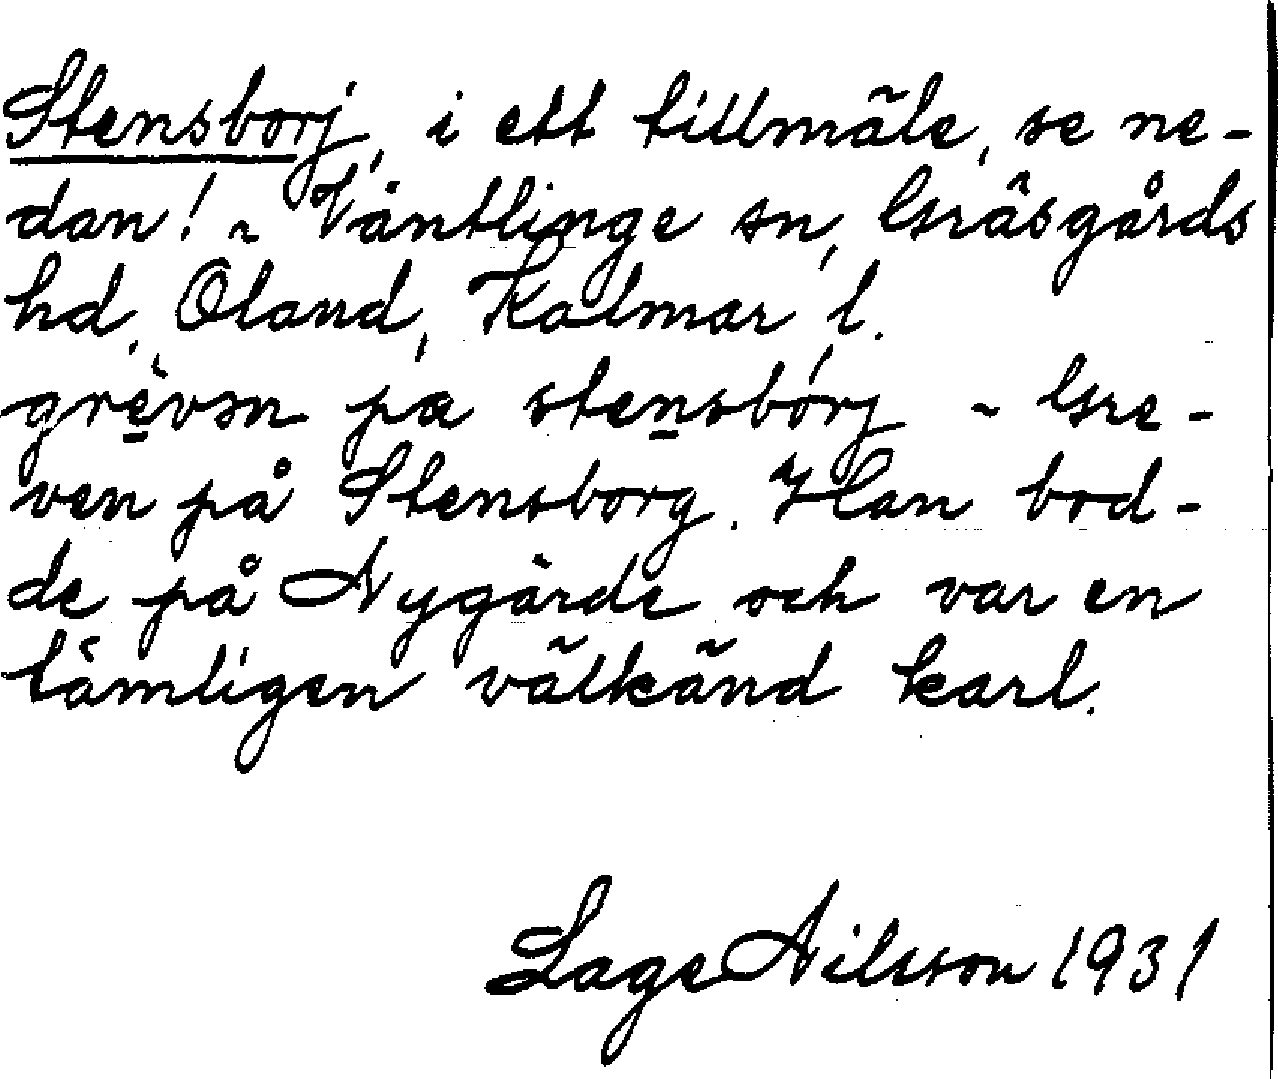 Stensborj, i ett tillmäle, se ne-
dan! ~ Väntlinge sn, Gräsgårds
hd, Öland, Kalmar l.
grèvən pa stensbórj ~ Gre-
ven på Stensborg. Han bod-
de på Nygärde och var en
tämligen välkänd karl.
Lage Nilsson 1931